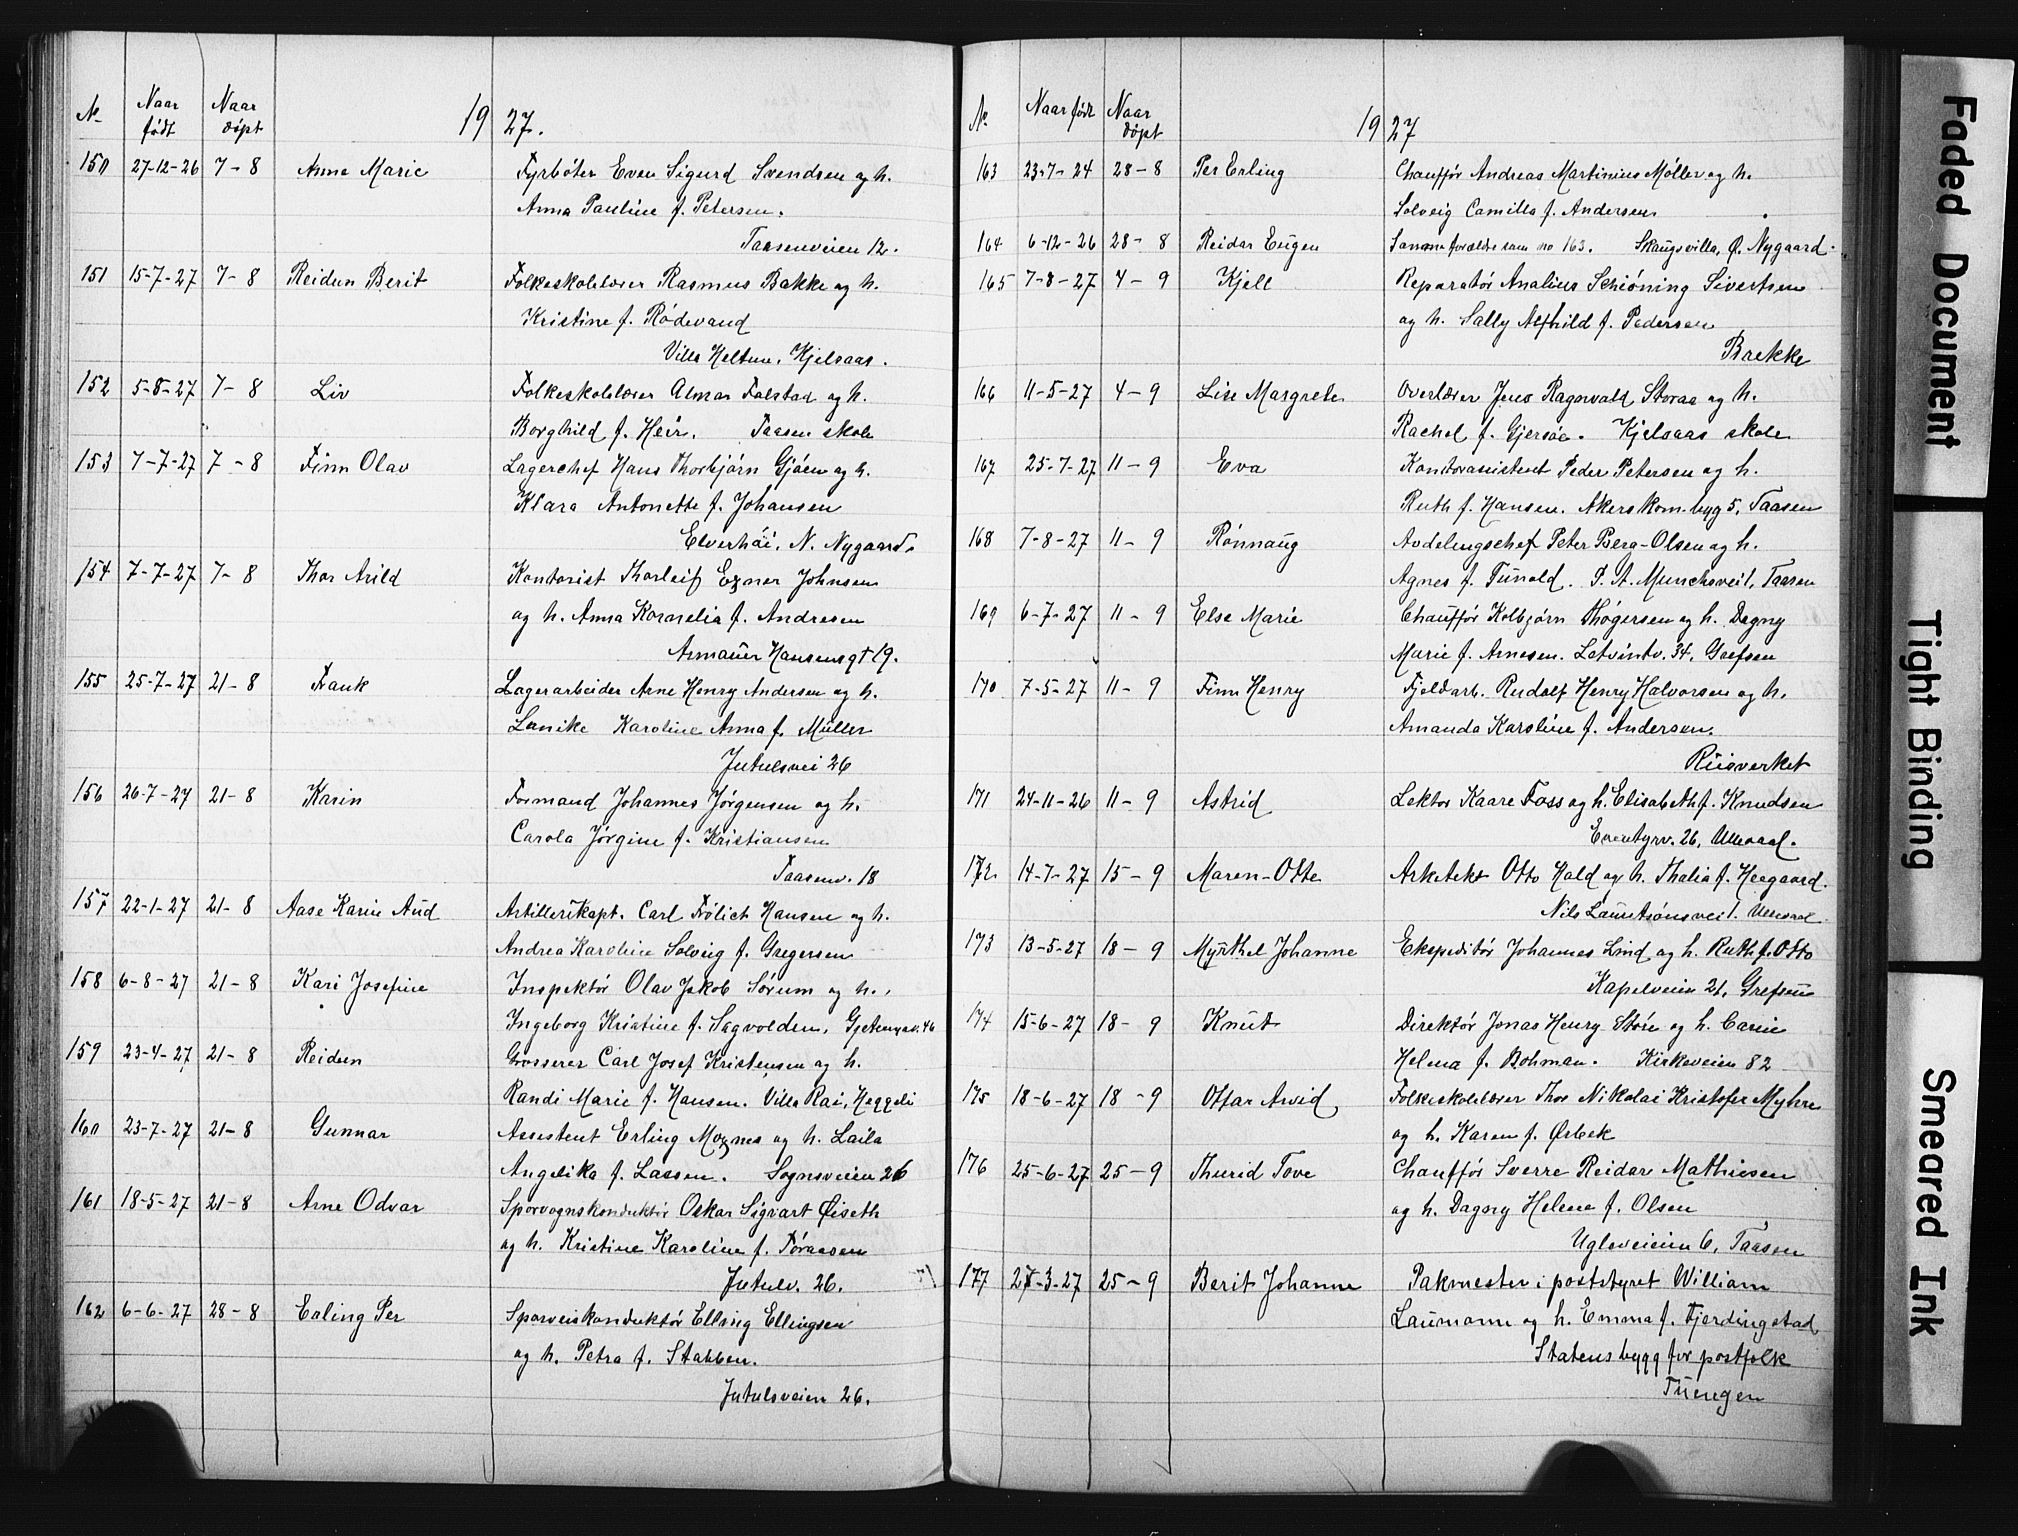 No Naar født Naar döpt 1927.
150 27-12-26 7-8 Anne Marie Fyrböter Even Sigurd Svendsen og h.
Anna Pauline f. Petersen.
Taasenveien 12.
151 15-7-27 7-8 Reidun Berit Folkeskolelærer Rasmus Bakke og h.
Kristine f. Rödevand
Villa Heltun, Kjelsaas.
152 5-8-27 7-8 Liv Folkeskolelærer Almar Falstad og h.
Borghild f. Heir. Taasen skole
153 7-7-27 7-8 Finn Olav Lagerchef Hans Thorbjörn Gjöen og h.
Klara Antonette f. Johansen
Elverhöi, N. Nygaard.
154 7-7-27 7-8 Thor Arild Kontorist Thorleif Exner Johnsen
og h. Anna Kornelia f. Andresen
Armauer Hansensgt 19.
155 25-7-27 21-8 Frank Lagerarbeider Arne Henry Andersen og h.
Karoline Anna f. Müller
Jutulsvei 26
156 26-7-27 21-8 Karin Formand Johannes Jörgensen og h.
Carola Jörgine f. Kristiansen
Taasenv. 18
157 22-1-27 21-8 Aase Karin Aud Artillerikapt. Carl Frölich Hansen og h.
Andrea Karoline Solveig f. Gregersen
158 6-8-27 21-8 Kari Josefine Inspektör Olav Jakob Sörum og h.
Ingeborg Kristine f. Sagvolden,
159 23-4-27 21-8 Reidun Grosserer Carl Josef Kristensen og h.
Randi Marie f. Hansen. Villa Rai, Heggeli
160 23-7-27 21-8 Gunnar Assistent Erling Moxnes og h. Laila
Angelika f. Lassen. Sognsveien 26
161 18-5-27 21-8 Arne Odvar Sporvognskonduktör Oskar Sigvart Øiseth
og h. Kristine Karoline f. Töraasen
Jutulv. 26.
162 6-6-27 28-8 Erling Per Sporveiskonduktör Elling Ellingsen
og h. Petra f. Stabben.
Jutulsveien 26.
No Naar født Naar döpt 1927
163 23-7-24 28-8 Per Erling Chauffør Andreas Martinius Möller og h.
Solveig Camilla f. Andersen
164 6-12-26 28-8 Reidar Eugen Samme forældre som no 163. Skaugsvilla, Ø. Nygaard.
165 7-8-27 4-9 Kjell Reparatør Analius Schiöning Sivertsen
og h. Sally Alfhild f. Pedersen
Brekke
166 11-5-27 4-9 Lise Margrete Overlærer Jens Ragnvald Storaa og h.
Rachel f. Gjersöe. Kjelsaas skole
167 25-7-27 11-9 Eva Kontorassistent Peder Petersen og h.
Ruth f. Hansen. Akers kom. byg 5, Taasen
168 7-8-27 11-9 Rönnaug Avdelingschef Peter Berg-Olsen og h.
Agnes f. Tunold. P. A. Munchsvei 1, Taasen
169 6-7-27 11-9 Else Marie Chauffør Kolbjörn Thögersen og h. Dagny
Marie f. Arnesen. Lotvintv. 34, Grefsen
170 7-5-27 11-9 Finn Henry Fjeldarb. Rudolf Henry Halvorsen og h.
Amanda Karoline f. Andersen.
Rusverket
171 24-11-26 11-9 Astrid Lektor Kaare Foss og h. Elisabeth f. Knudsen
Eventyrv. 26, Ullevaal.
172 14-7-27 15-9 Maren-Otte Arkitekt Otto Hald og h. Thalia f. Heegaard.
Nils Lauritsönsvei 1. Ullevaal
173 13-5-27 18-9 Myrthel Johanne Ekspeditör Johannes Lind og h. Ruth f. Otto
Kapelveien 21, Grefsen
174 15-6-27 18-9 Knut Direktör Jonas Henry Störe og h. Carin
Helena f. Bohman. Kirkeveien 82
175 18-6-27 18-9 Ottar Arvid Folkeskolelærer Thor Nikolai Kristofer Myhre
og h. Karen f. Ørbek
176 25-6-27 25-9 Thurid Tove Chauffør Sverre Reidar Mathiesen
og h. Dagny Helene f. Olsen
Ugleveien 6, Taasen
177 27-3-27 25-9 Berit Johanne Pakmester i poststyret William
Laumann og h. Emma f. Fjerdingstad
Statens bygg for postfolk
Tuengen
Faded Document
Tight Binding
Smeared Ink